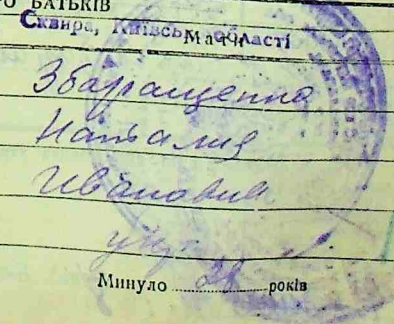 О БАТЬКІВ
Сквира, Київської області
Мати
Збаращенко
Наталия
Ивановна
укр.
Минуло 21 років